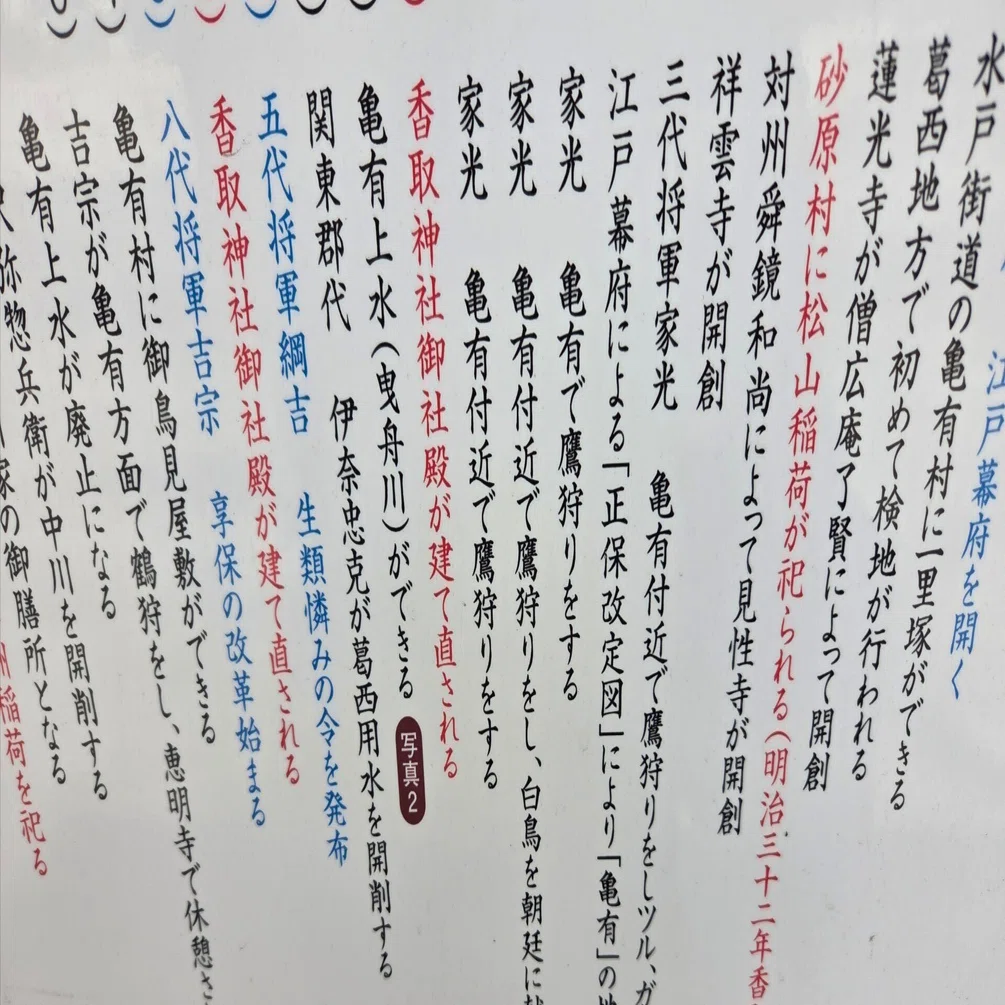 江戸幕府を開く
水戸街道の亀有村に一里塚ができる
葛西地方で初めて検地が行われる
蓮光寺が僧広庵了賢によって開創
砂原村に松山稲荷が祀られる(明治三十二年香
対州舜鏡和尚によって見性寺が開創
祥雲寺が開創
三代将軍家光 亀有付近で鷹狩りをしツル、ガ
江戸幕府による「正保改定図」により「亀有」の地
家光 亀有で鷹狩りをする
家光 亀有付近で鷹狩りをし、白鳥を朝廷に
家光 亀有付近で鷹狩りをする
香取神社御社殿が建て直される
亀有上水(曳舟川)ができる 写真2
関東郡代 伊奈忠克が葛西用水を開削する
五代将軍綱吉 生類憐みの令を発布
香取神社御社殿が建て直される
八代将軍吉宗 享保の改革始まる
亀有村に御鳥見屋敷ができる
吉宗が亀有方面で鶴狩をし、恵明寺で休憩さ
亀有上水が廃止になる
弥惣兵衛が中川を開削する
家の御膳所となる
稲荷を祀る